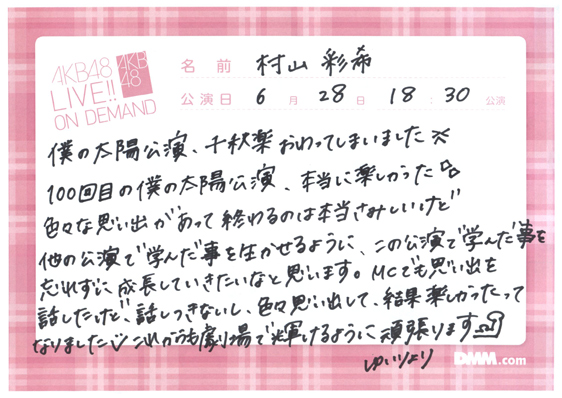 AKB48
LIVE!!
ON DEMAND
AKB
48
名前 村山 彩希
公演日 6月28日 18:30公演
僕の太陽公演、千秋楽おわってしまいました
100回目の僕の太陽公演、本当に楽しかった
色々な思い出があって終わるのは本当さみしいけど
他の公演で学んだ事を生かせるように、この公演で学んだ事を
忘れずに成長していきたいなと思います。MCでも思い出を
話したけど、話しつきないし、色々思い出して、結果楽しかったって
なりました これからも劇場で輝けるように頑張ります
ゆいりより
DMM.com